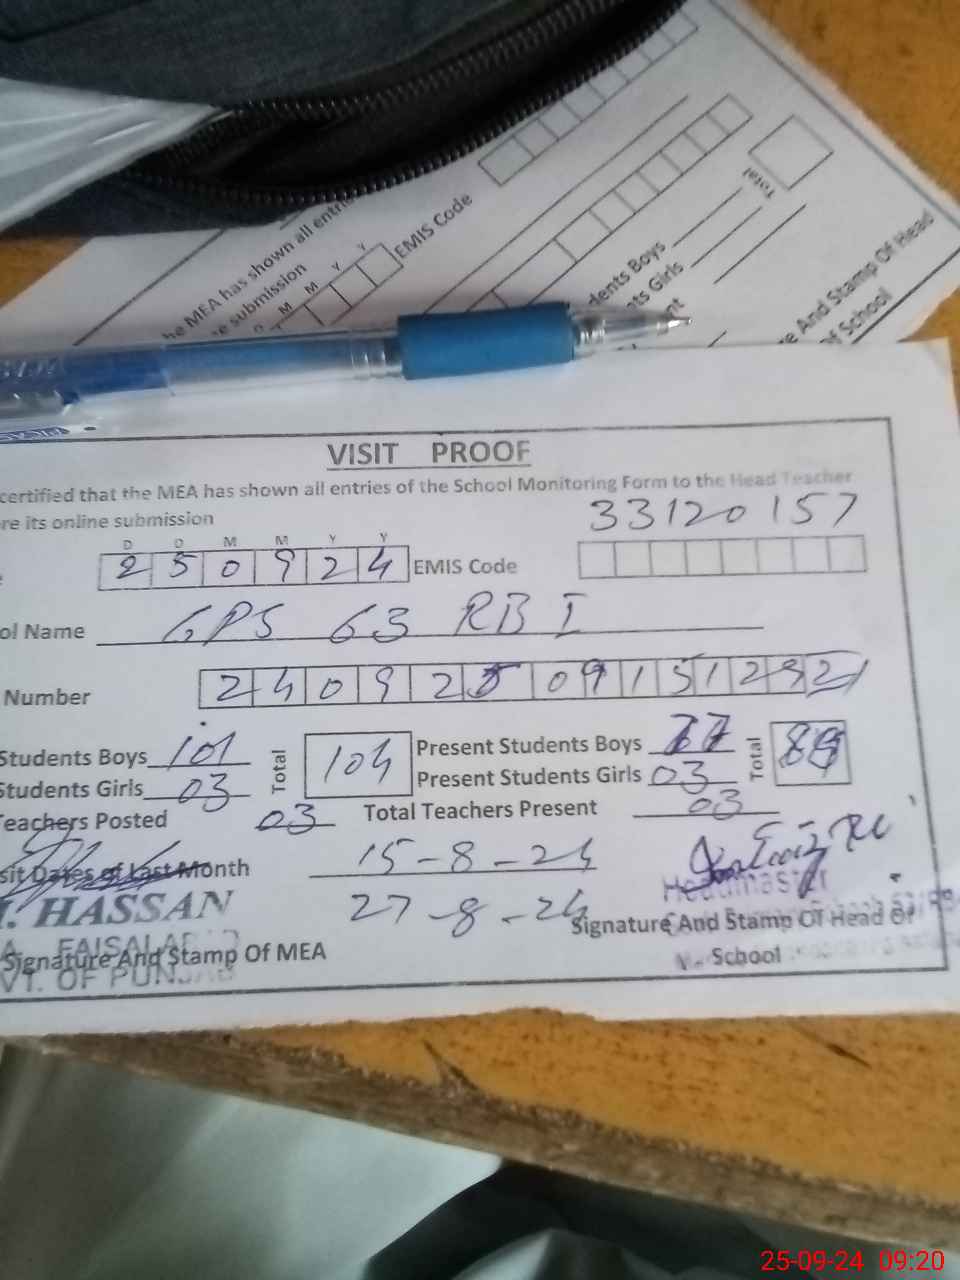 he MEA has shown all entrie
e submission
M M Y Y
EMIS Code
Total
dents Boys
ts Girls
nt
e And Stamp Of Head
Of School
VISIT PROOF
certified that the MEA has shown all entries of the School Monitoring Form to the Head Teacher
re its online submission
33120157
D D M M Y Y
250924 EMIS Code
ol Name GPS 63 RB I
Number 24092509151292
Students Boys 101 Total 104 Present Students Boys Total
Students Girls 03 Present Students Girls 03
Teachers Posted 03 Total Teachers Present 03
sit Dates of Last Month 15-8-24
HASSAN 27-8-24
Headmaster
Signature And Stamp Of Head Of
School
FAISALABAD
Signature And Stamp Of MEA
VT. OF PUNJAB
25-09-24 09:20